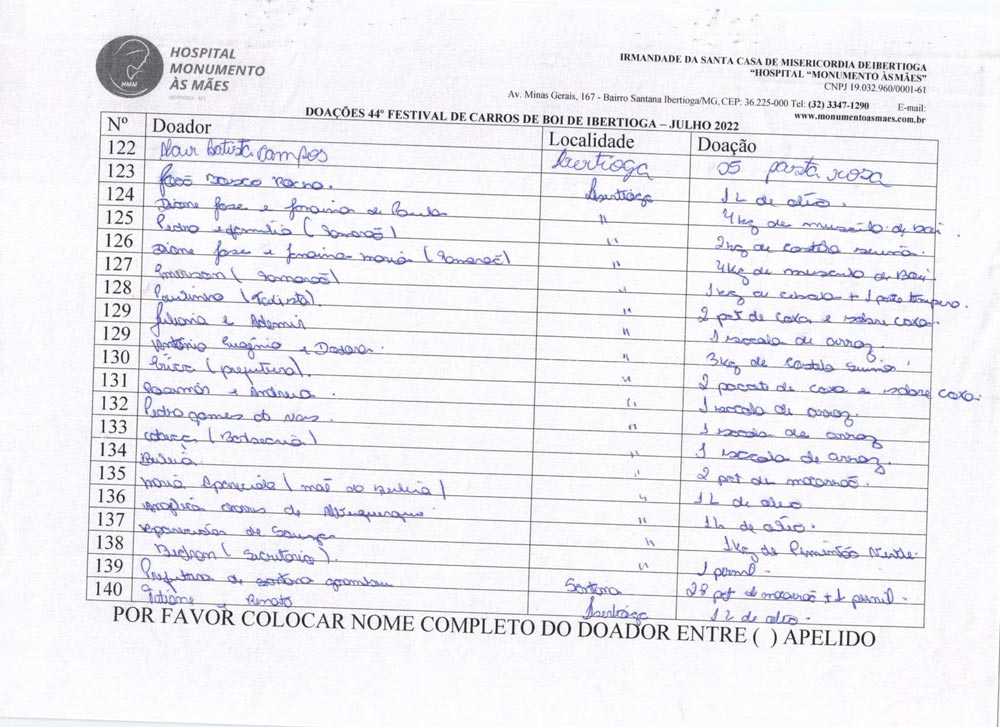 HOSPITAL
MONUMENTO
ÀS MÃES
IBERTIOGA - MG
HMM
IRMANDADE DA SANTA CASA DE MISERICORDIA DEIBERTIOGA
“HOSPITAL “MONUMENTO ÀS MÃES”
CNPJ 19.032.960/0001-61
Av. Minas Gerais, 167 - Bairro Santana Ibertioga/MG, CEP: 36.225-000 Tel: (32) 3347-1290 E-mail:
www.monumentoasmaes.com.br
DOAÇÕES 44º FESTIVAL DE CARROS DE BOI DE IBERTIOGA – JULHO 2022
Nº Doador Localidade Doação
122 Batista Campos Ibertioga 05 pasta rosa
123 João Bosco Ibertioga 1L de alho.
124 Diane Jose e Janaina de Paula " 4kg de musculo de boi.
125 Pedro e familia ( ) " 2kg de costela suina.
126 Diane Jose e Janaina Maria ( ) " 4kg de musculo de Boi
127 Emerson ( ) " 1kg de cebola + 1 pote tempero.
128 Paulinho (Taxista). " 2 pct de coxa e sobre coxa.
129 Juliana e Ademir " 1 sacola de arroz.
129 Antônio Eugênio e " 3kg de costela suina
130 Érica (prefeitura). " 2 pacote de coxa e sobre coxa.
131 e Andreia " 1 sacola de arroz.
132 Pedro gomes " 1 sacola de arroz
133 " 1 sacola de arroz.
134 " 2 pct de macarrão.
135 Maria Aparecida (mãe do ) " 1L de alho
136 de Albuquerque " 1L de alho.
137 Aparecida de Souza " 1kg de Pimentão Verde
138 (Secretario). " 1 pernil.
139 Prefeitura de Santana Santana 28 pct de macarrão + 1 pernil.
140 Tatiane e Renato Ibertioga 12 de alho.
POR FAVOR COLOCAR NOME COMPLETO DO DOADOR ENTRE ( ) APELIDO